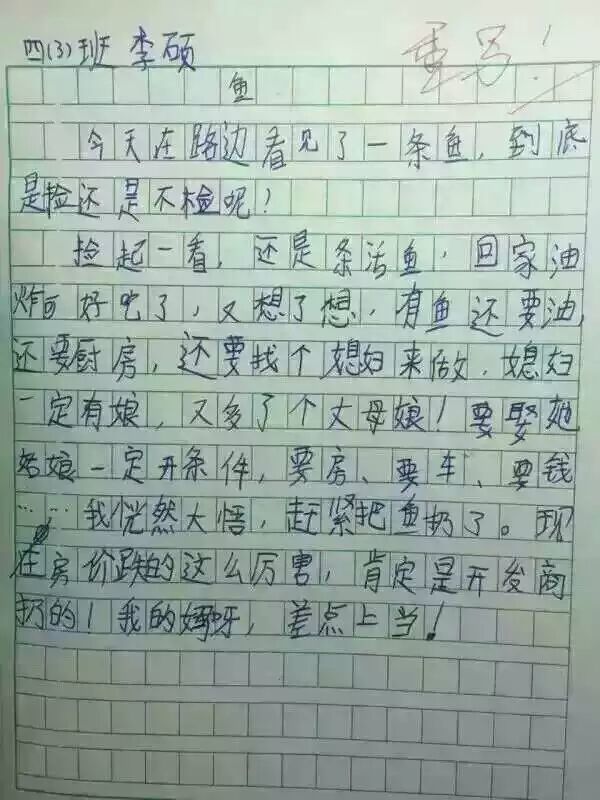 四(3)班 李硕
重写!
鱼
今天在路边看见了一条鱼,到底
是捡还是不检呢!
捡起一看,还是条活鱼,回家油
炸可好吃了,又想了想,有鱼还要油,
还要厨房,还要找个媳妇来做,媳妇
一定有娘,又多了个丈母娘!要娶她
姑娘一定开条件,要房、要车、要钱
……我恍然大悟,赶紧把鱼扔了。现
在房价跌的这么厉害,肯定是开发商
扔的!我的妈呀,差点上当!